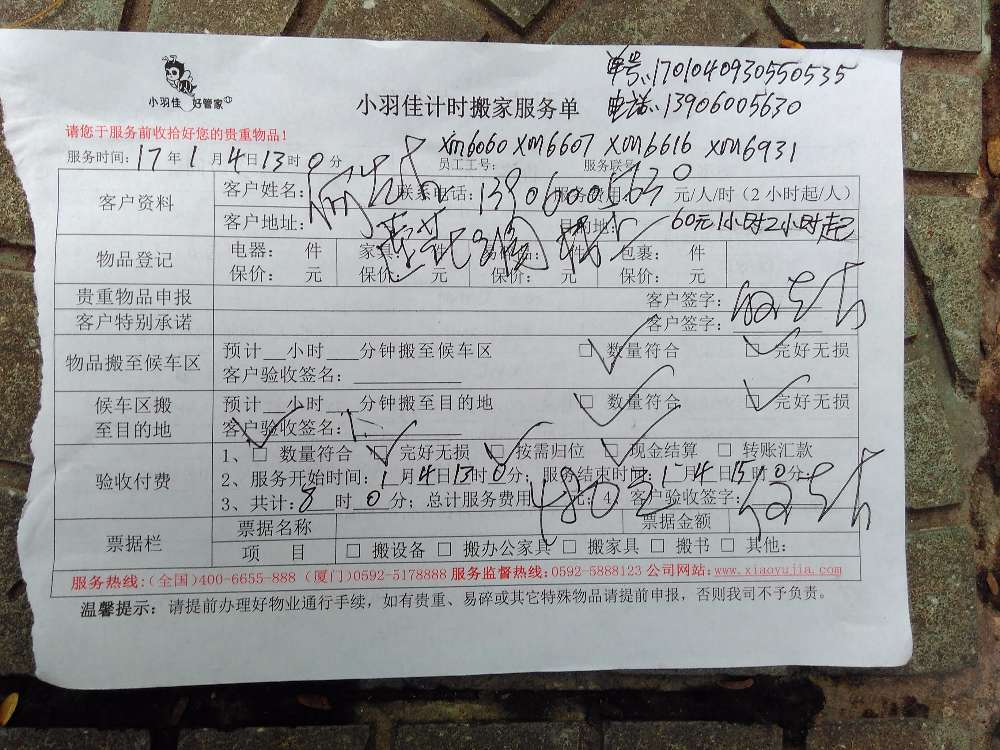 单号:17010409305505​35
小羽佳 好管家
小羽佳计时搬家服务单
电话:13906005630
请您于服务前收拾好您的贵重物品!
xm6060 xm6607 xm6616 xm6931
服务时间:17年1月4日13时0分 员工工号: 服务联号:
客户资料 客户姓名: 联系电话:13906005630 服务费用: 元/人/时(2小时起/人)
客户地址: 目的地: 60元1小时2小时起
物品登记 电器: 件 家具: 件 易碎品: 件 包裹: 件
保价: 元 保价: 元 保价: 元 保价: 元
贵重物品申报 客户签字:
客户特别承诺 客户签字:
物品搬至候车区 预计__小时___分钟搬至候车区 □ 数量符合 □ 完好无损
客户验收签名:
候车区搬至目的地 预计__小时___分钟搬至目的地 □ 数量符合 □ 完好无损
客户验收签名:
验收付费 1、□ 数量符合 □ 完好无损 □ 按需归位 □ 现金结算 □ 转账汇款
2、服务开始时间:1月4日13时0分;服务结束时间:1月4日15时0分;
3、共计:8时0分;总计服务费用480元;4、客户验收签字:
票据栏 票据名称 票据金额
项 目 □ 搬设备 □ 搬办公家具 □ 搬家具 □ 搬书 □ 其他:
服务热线:(全国)400-6655-888 (厦门)0592-5178888 服务监督热线:0592-5888123 公司网站:www.xiaoyujia.com
温馨提示:请提前办理好物业通行手续,如有贵重、易碎或其它特殊物品请提前申报,否则我司不予负责。